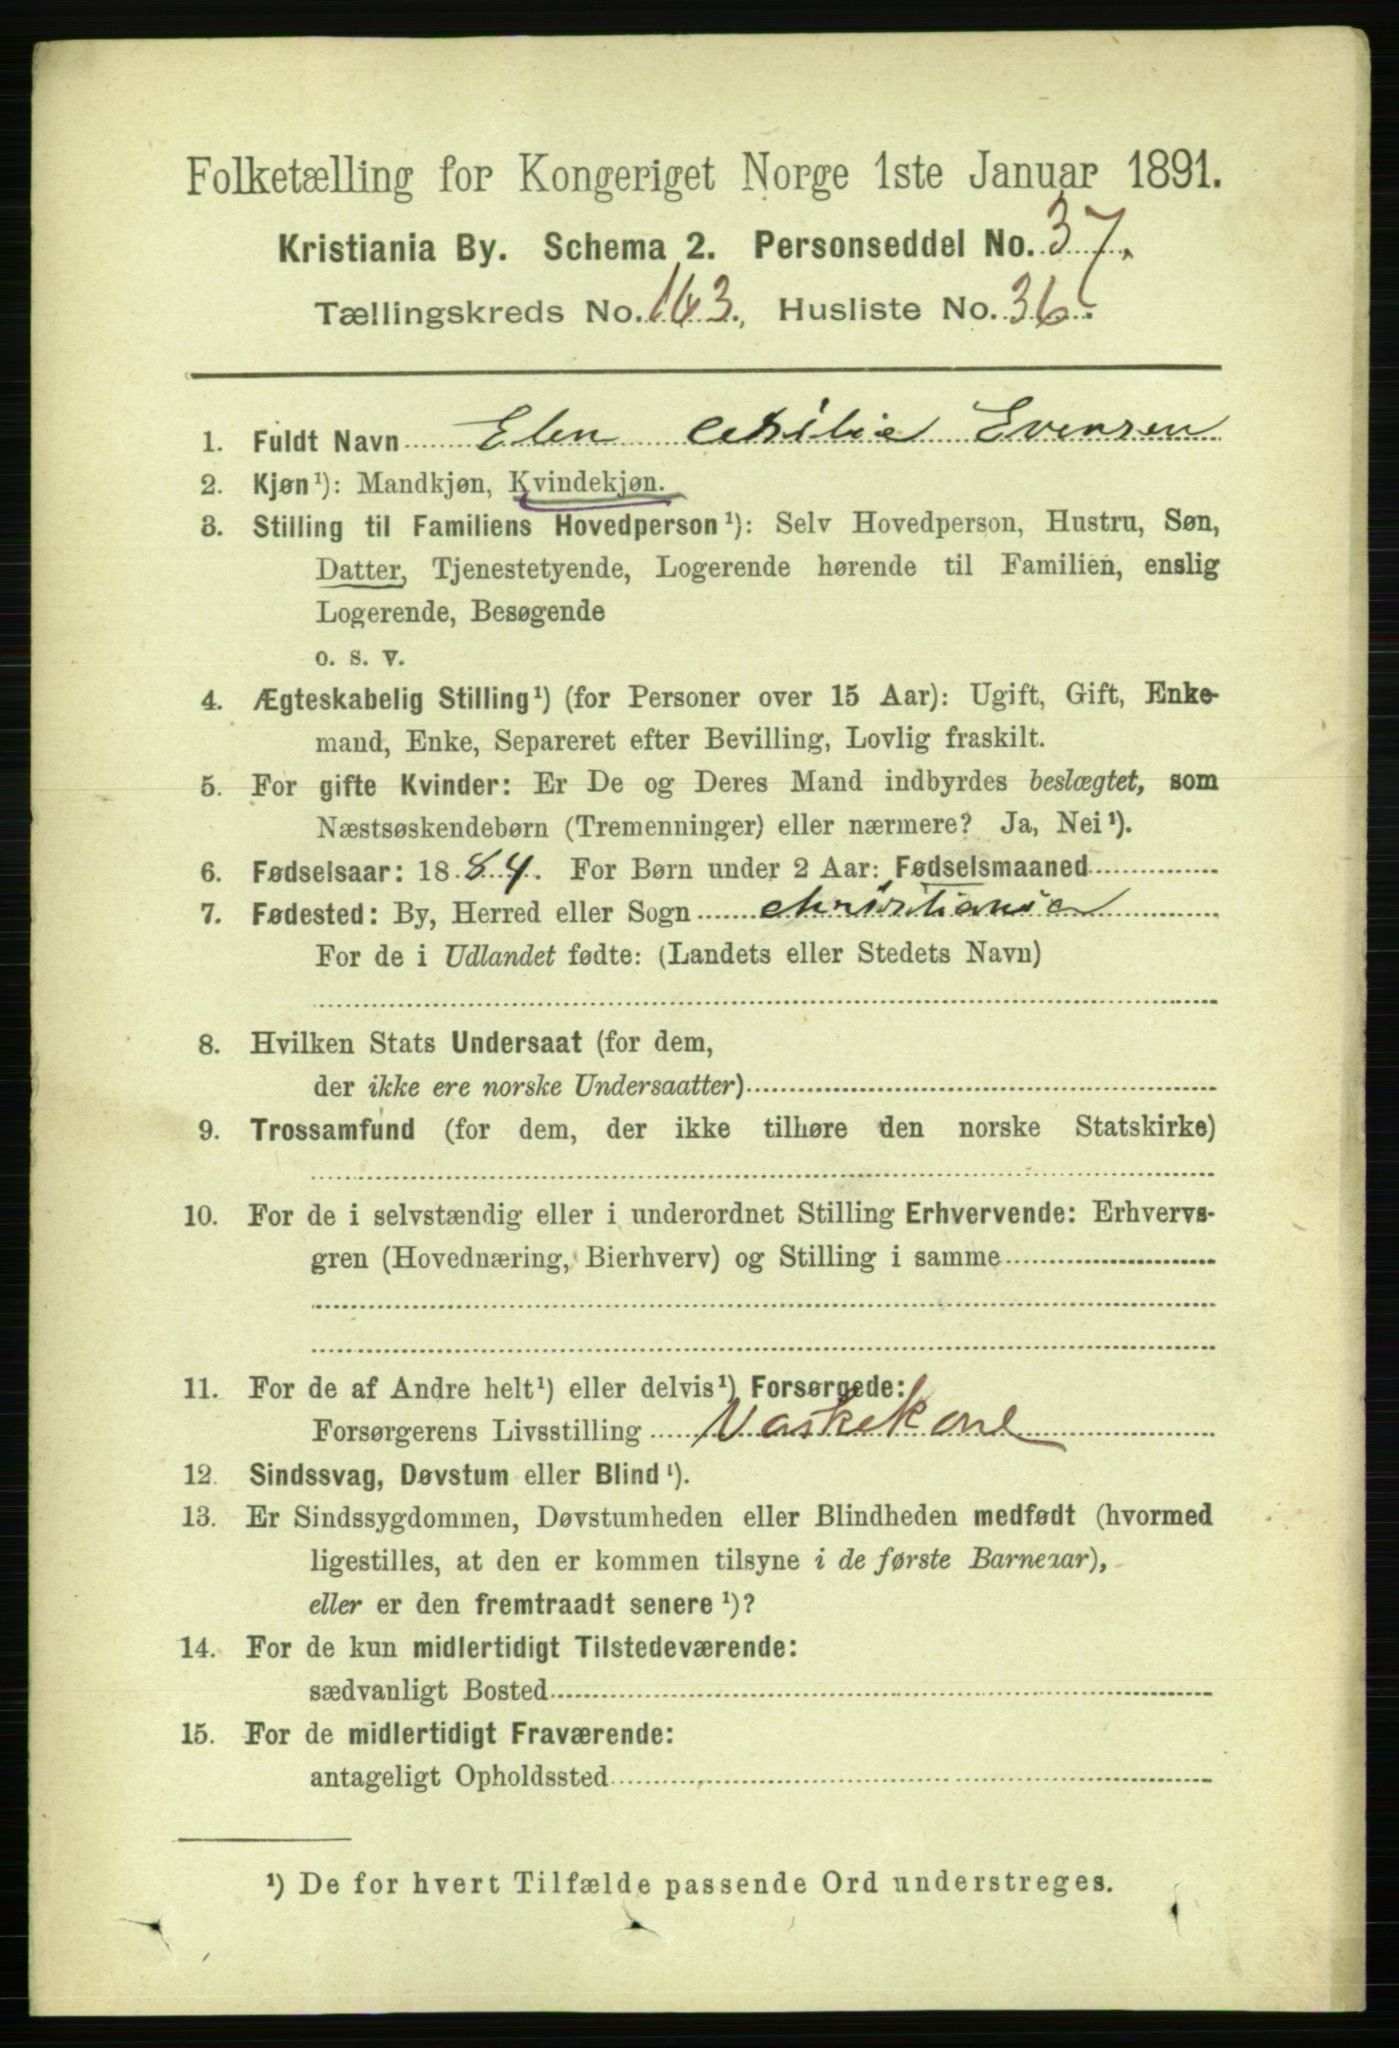 Folketælling for Kongeriget Norge 1ste Januar 1891.
Kristiania By. Schema 2. Personseddel No. 37.
Tællingskreds No. 163. Husliste No. 36.
1. Fuldt Navn Elen Cesilie Evensen
2. Kjøn¹): Mandkjøn, Kvindekjøn.
3. Stilling til Familiens Hovedperson¹): Selv Hovedperson, Hustru, Søn,
Datter, Tjenestetyende, Logerende hørende til Familien, enslig
Logerende, Besøgende
o. s. v.
4. Ægteskabelig Stilling¹) (for Personer over 15 Aar): Ugift, Gift, Enke-
mand, Enke, Separeret efter Bevilling, Lovlig fraskilt.
5. For gifte Kvinder: Er De og Deres Mand indbyrdes beslægtet, som
Næstsøskendebørn (Tremenninger) eller nærmere? Ja, Nei¹).
6. Fødselsaar: 1884. For Børn under 2 Aar: Fødselsmaaned
7. Fødested: By, Herred eller Sogn christiania
For de i Udlandet fødte: (Landets eller Stedets Navn)
8. Hvilken Stats Undersaat (for dem,
der ikke ere norske Undersaatter)
9. Trossamfund (for dem, der ikke tilhøre den norske Statskirke)
10. For de i selvstændig eller i underordnet Stilling Erhvervende: Erhvervs-
gren (Hovednæring, Bierhverv) og Stilling i samme
11. For de af Andre helt¹) eller delvis¹) Forsørgede:
Forsørgerens Livsstilling Vaskekone
12. Sindssvag, Døvstum eller Blind¹).
13. Er Sindssygdommen, Døvstumheden eller Blindheden medfødt (hvormed
ligestilles, at den er kommen tilsyne i de første Barneaar),
eller er den fremtraadt senere¹)?
14. For de kun midlertidigt Tilstedeværende:
sædvanligt Bosted
15. For de midlertidigt Fraværende:
antageligt Opholdssted
¹) De for hvert Tilfælde passende Ord understreges.